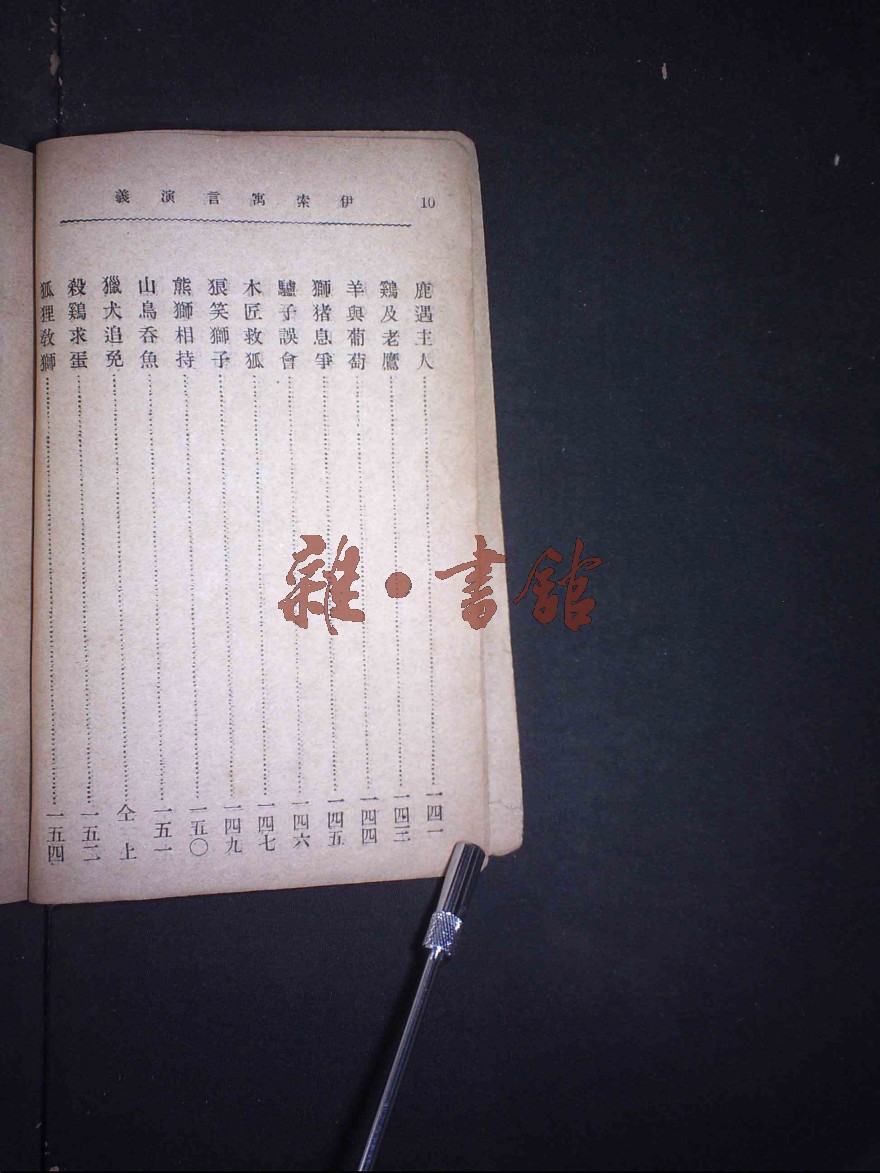 10 伊索寓言演義
鹿遇主人……一四一
鷄及老鷹……一四三
羊與葡萄……一四四
獅猪息爭……一四五
驢子誤會……一四六
木匠救狐……一四七
狼笑獅子……一四九
熊獅相持……一五〇
山鳥吞魚……一五一
獵犬追兔……仝上
殺鷄求蛋……一五二
狐狸教獅……一五四
雜·書館